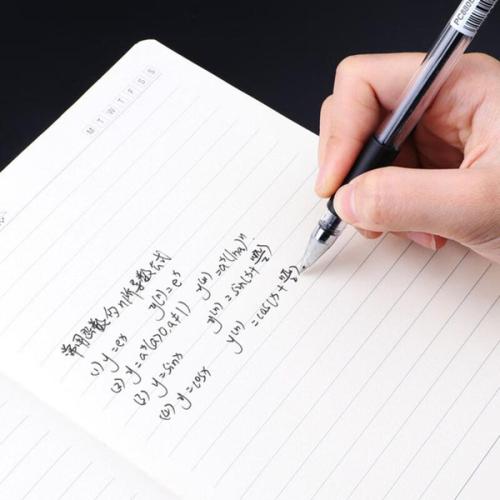 M T W T F S S
PC880D
常用函数的n阶导数公式
(1) y=eˣ y⁽ⁿ⁾=eˣ
(2) y=aˣ(a>0,a≠1) y⁽ⁿ⁾=aˣ(lna)ⁿ
(3) y=sinx y⁽ⁿ⁾=sin(x+nπ/2)
(4) y=cosx y⁽ⁿ⁾=cos(x+nπ/2)